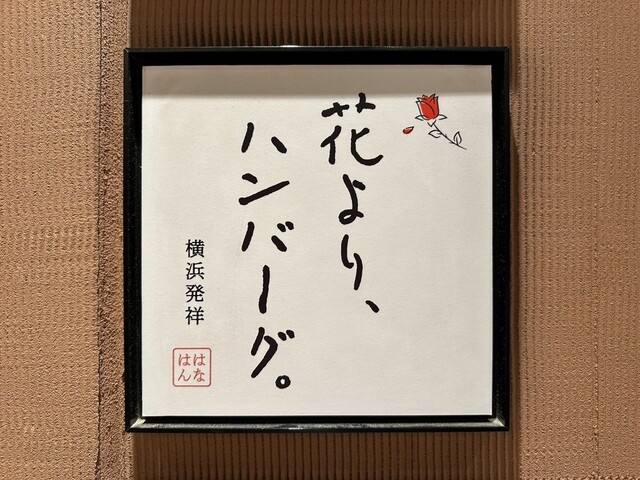 花より、
ハンバーグ。
横浜発祥
はな
はん